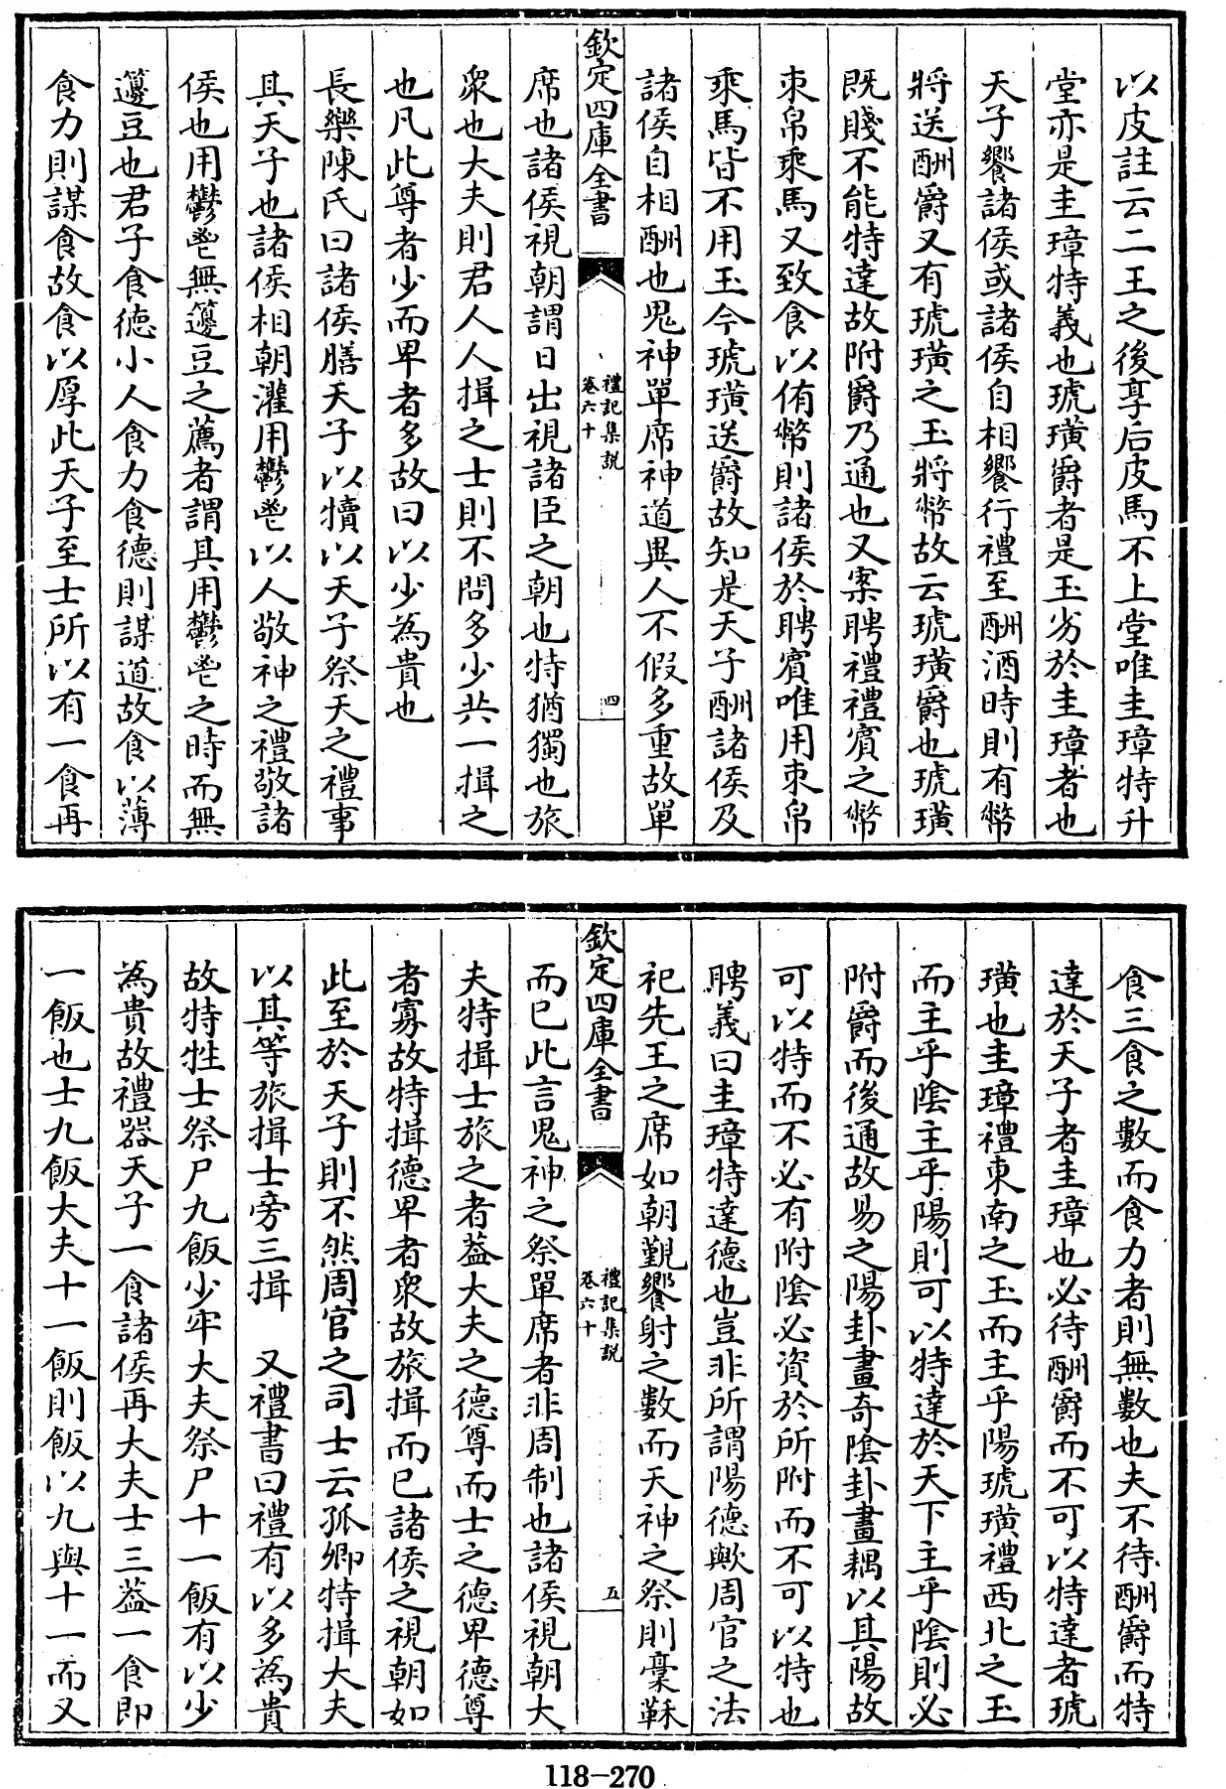 以皮註云二王之後享后皮馬不上堂唯圭璋特升
堂亦是圭璋特義也琥璜爵者是玉劣於圭璋者也
天子饗諸侯或諸侯自相饗行禮至酬酒時則有幣
將送酬爵又有琥璜之玉將幣故云琥璜爵也琥璜
既賤不能特達故附爵乃通也又案聘禮禮賓之幣
束帛乘馬又致食以侑幣則諸侯於聘賓唯用束帛
乘馬皆不用玉今琥璜送爵故知是天子酬諸侯及
諸侯自相酬也鬼神單席神道異人不假多重故單
欽定四庫全書
禮記集說
卷六十
四
席也諸侯視朝謂日出視諸臣之朝也特猶獨也旅
衆也大夫則君人人揖之士則不問多少共一揖之
也凡此尊者少而卑者多故曰以少為貴也
長樂陳氏曰諸侯膳天子以犢以天子祭天之禮事
其天子也諸侯相朝灌用鬱鬯以人敬神之禮敬諸
侯也用鬱鬯無籩豆之薦者謂其用鬱鬯之時而無
籩豆也君子食德小人食力食德則謀道故食以薄
食力則謀食故食以厚此天子至士所以有一食再
食三食之數而食力者則無數也夫不待酬爵而特
達於天子者圭璋也必待酬爵而不可以特達者琥
璜也圭璋禮東南之玉而主乎陽琥璜禮西北之玉
而主乎陰主乎陽則可以特達於天下主乎陰則必
附爵而後通故易之陽卦畫奇陰卦畫耦以其陽故
可以特而不必有附陰必資於所附而不可以特也
聘義曰圭璋特達德也豈非所謂陽德歟周官之法
祀先王之席如朝覲饗射之數而天神之祭則稾鞂
欽定四庫全書
禮記集說
卷六十
五
而已此言鬼神之祭單席者非周制也諸侯視朝大
夫特揖士旅之者葢大夫之德尊而士之德卑德尊
者寡故特揖德卑者衆故旅揖而已諸侯之視朝如
此至於天子則不然周官之司士云孤卿特揖大夫
以其等旅揖士旁三揖　又禮書曰禮有以多為貴
故特牲士祭尸九飯少牢大夫祭尸十一飯有以少
為貴故禮器天子一食諸侯再大夫士三葢一食即
一飯也士九飯大夫十一飯則飯以九與十一而又
118-270